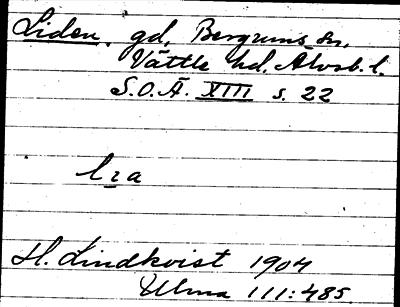 Liden, gd, Bergums sn,
Vättle hd. Älvsb. l.
S.O.Ä. XIII s. 22
lza
H. Lindkvist 1904
Ulma 111:485.